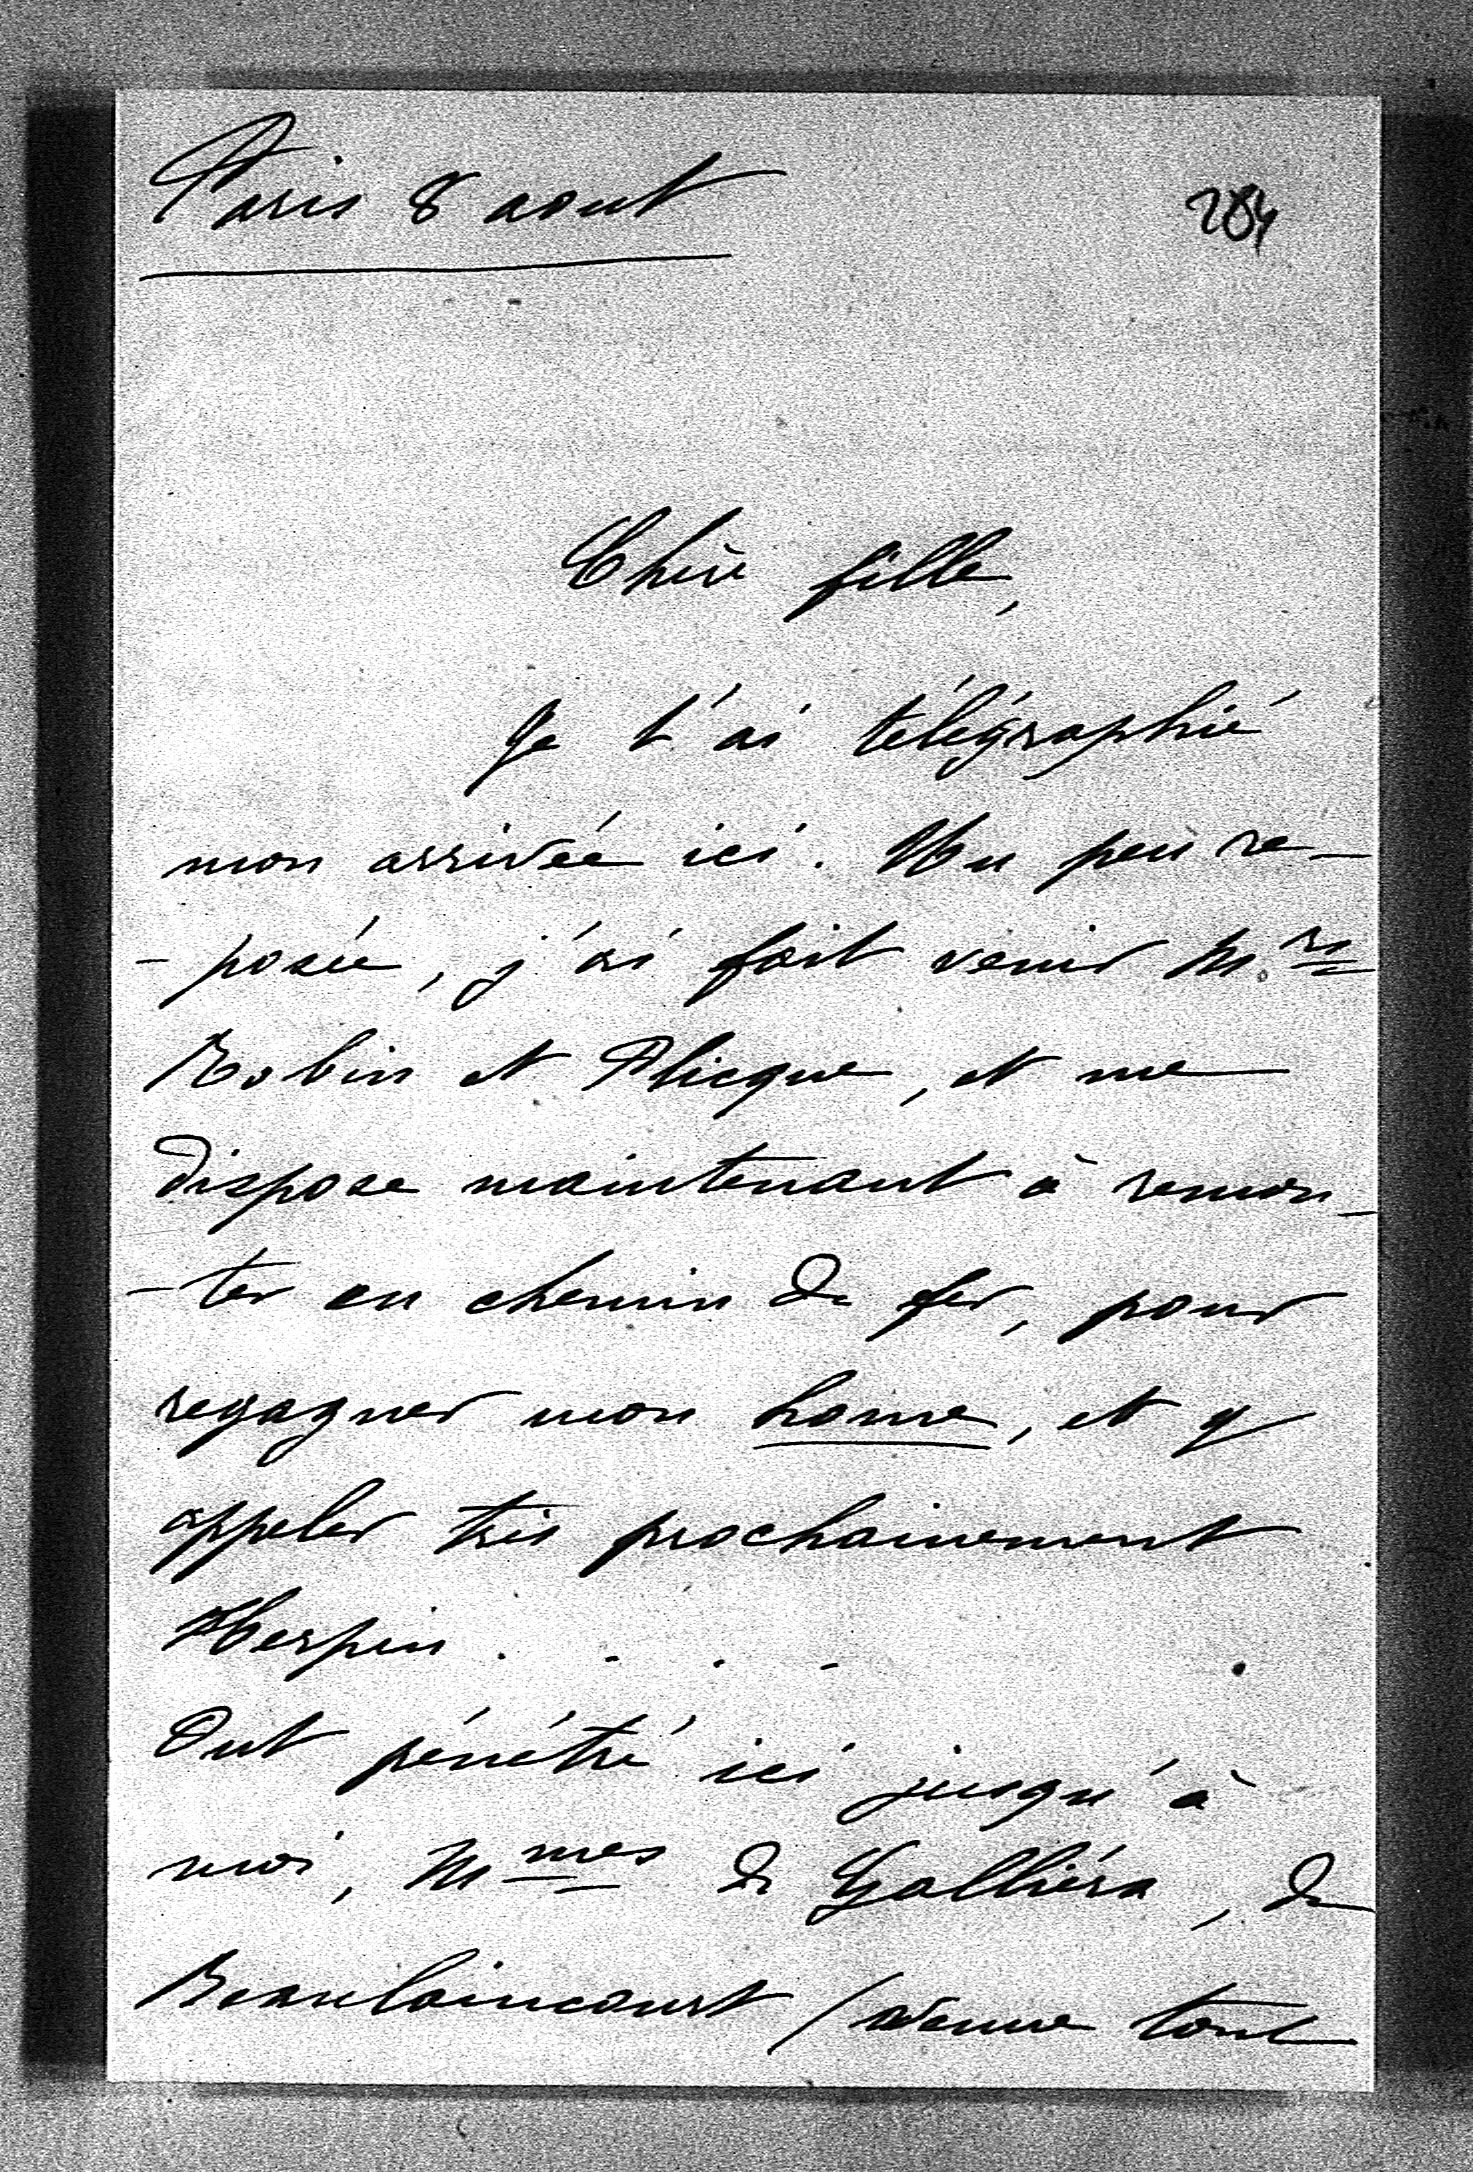 Paris 8 aout
204
Chère fille,
Je t'ai télégraphié
mon arrivée ici. Un peu re-
-posée, j'ai fait venir M.rs
Robin et Plicque, et me
dispose maintenant à remon-
-ter en chemin de fer, pour
regagner mon home, et y
appeler très prochainement
Herpin . . . .
Ont pénétré ici jusqu'à
moi, Mmes de Galliéra, de
Beaulaincourt (venue tout